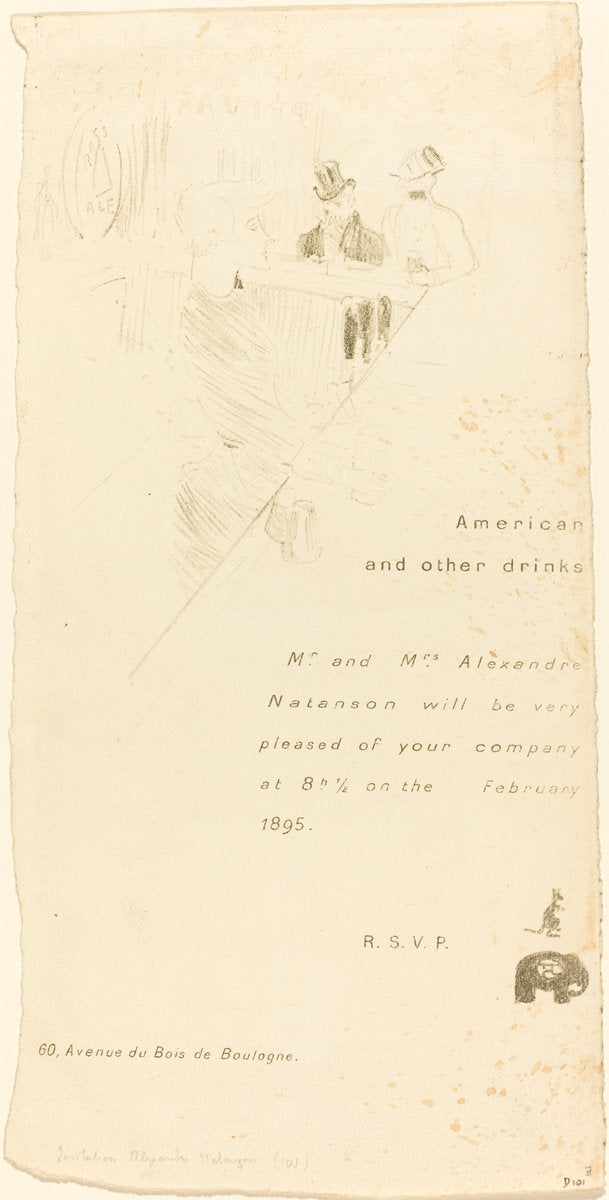 BASS
ALE
American
and other drinks
Mr. and Mrs. Alexandre
Natanson will be very
pleased of your company
at 8h. 1/2 on the February
1895.
R. S. V. P.
60, Avenue du Bois de Boulogne.
Invitation Alexandre Natanson (101)
D 101